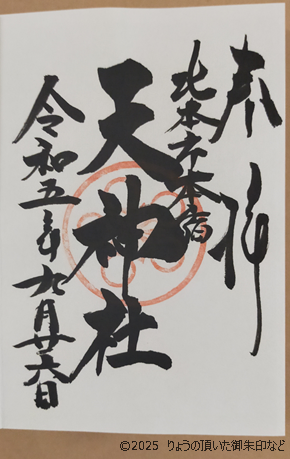 奉拝
北本市本宿
天神社
令和五年九月廿六日
©2025 りょうの頂いた御朱印など